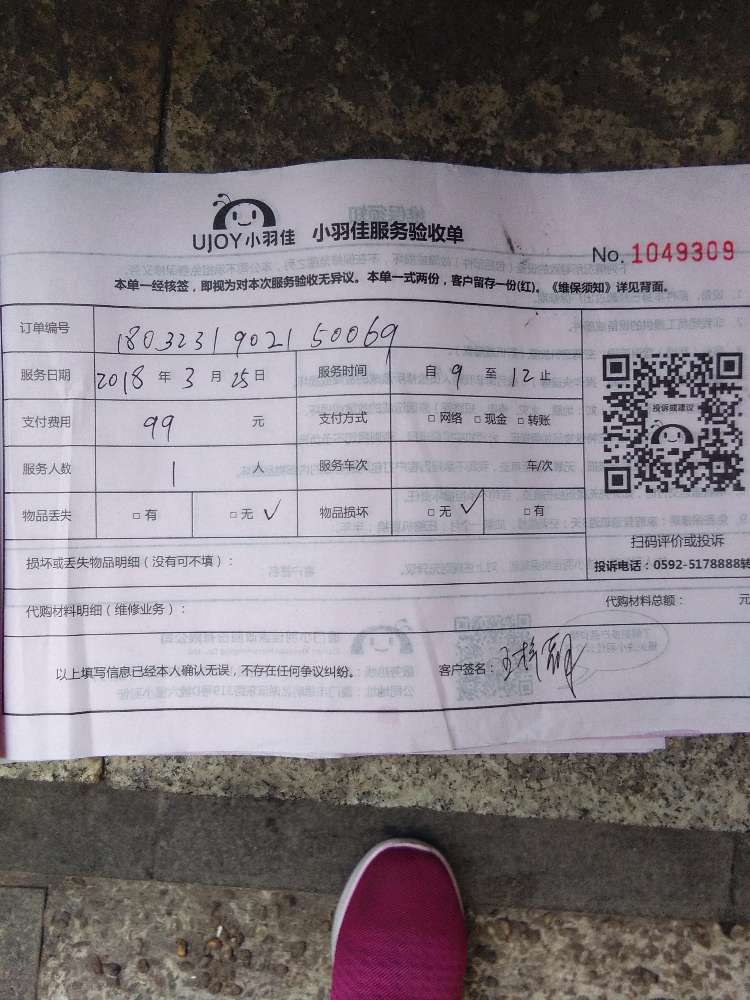 UJOY小羽佳 小羽佳服务验收单
No. 1049309
本单一经核签，即视为对本次服务验收无异议。本单一式两份，客户留存一份(红)。《维保须知》详见背面。
订单编号 1803231902150069
服务日期 2018 年 3 月 25 日 服务时间 自 9 至 12 止
支付费用 99 元 支付方式 □ 网络 □ 现金 □ 转账
服务人数 1 人 服务车次 车/次
物品丢失 □ 有 □ 无 ✓ 物品损坏 □ 无 ✓ □ 有
投诉或建议
扫码评价或投诉
投诉电话：0592-5178888转
损坏或丢失物品明细（没有可不填）：
代购材料明细（维修业务）： 代购材料总额： 元
以上填写信息已经本人确认无误，不存在任何争议纠纷。 客户签名：